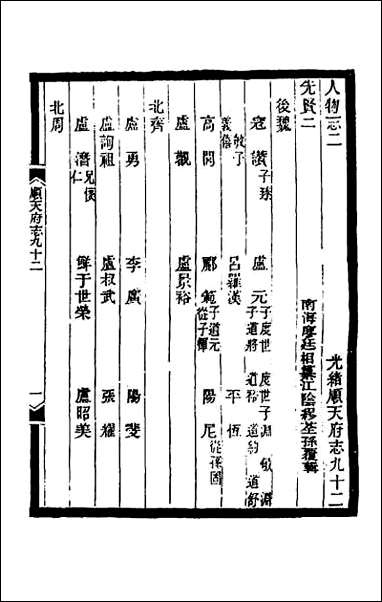 人物志二　光緒順天府志九十二
先賢二　南海廖廷相纂江陰繆荃孫覆輯
後魏
寇讚子臻　盧元子度世　度世子淵　敏　淵子道將　道裕　道約　道舒
敏子義僖　呂羅漢　平恆
高閭　酈範子道元　從子惲　陽尼從孫固
盧觀　盧景裕
北齊
盧勇　李廣　陽斐
盧詢祖　盧叔武　張耀
盧潛兄懷仁　鮮于世榮　盧昭美
北周
順天府志九十二　一